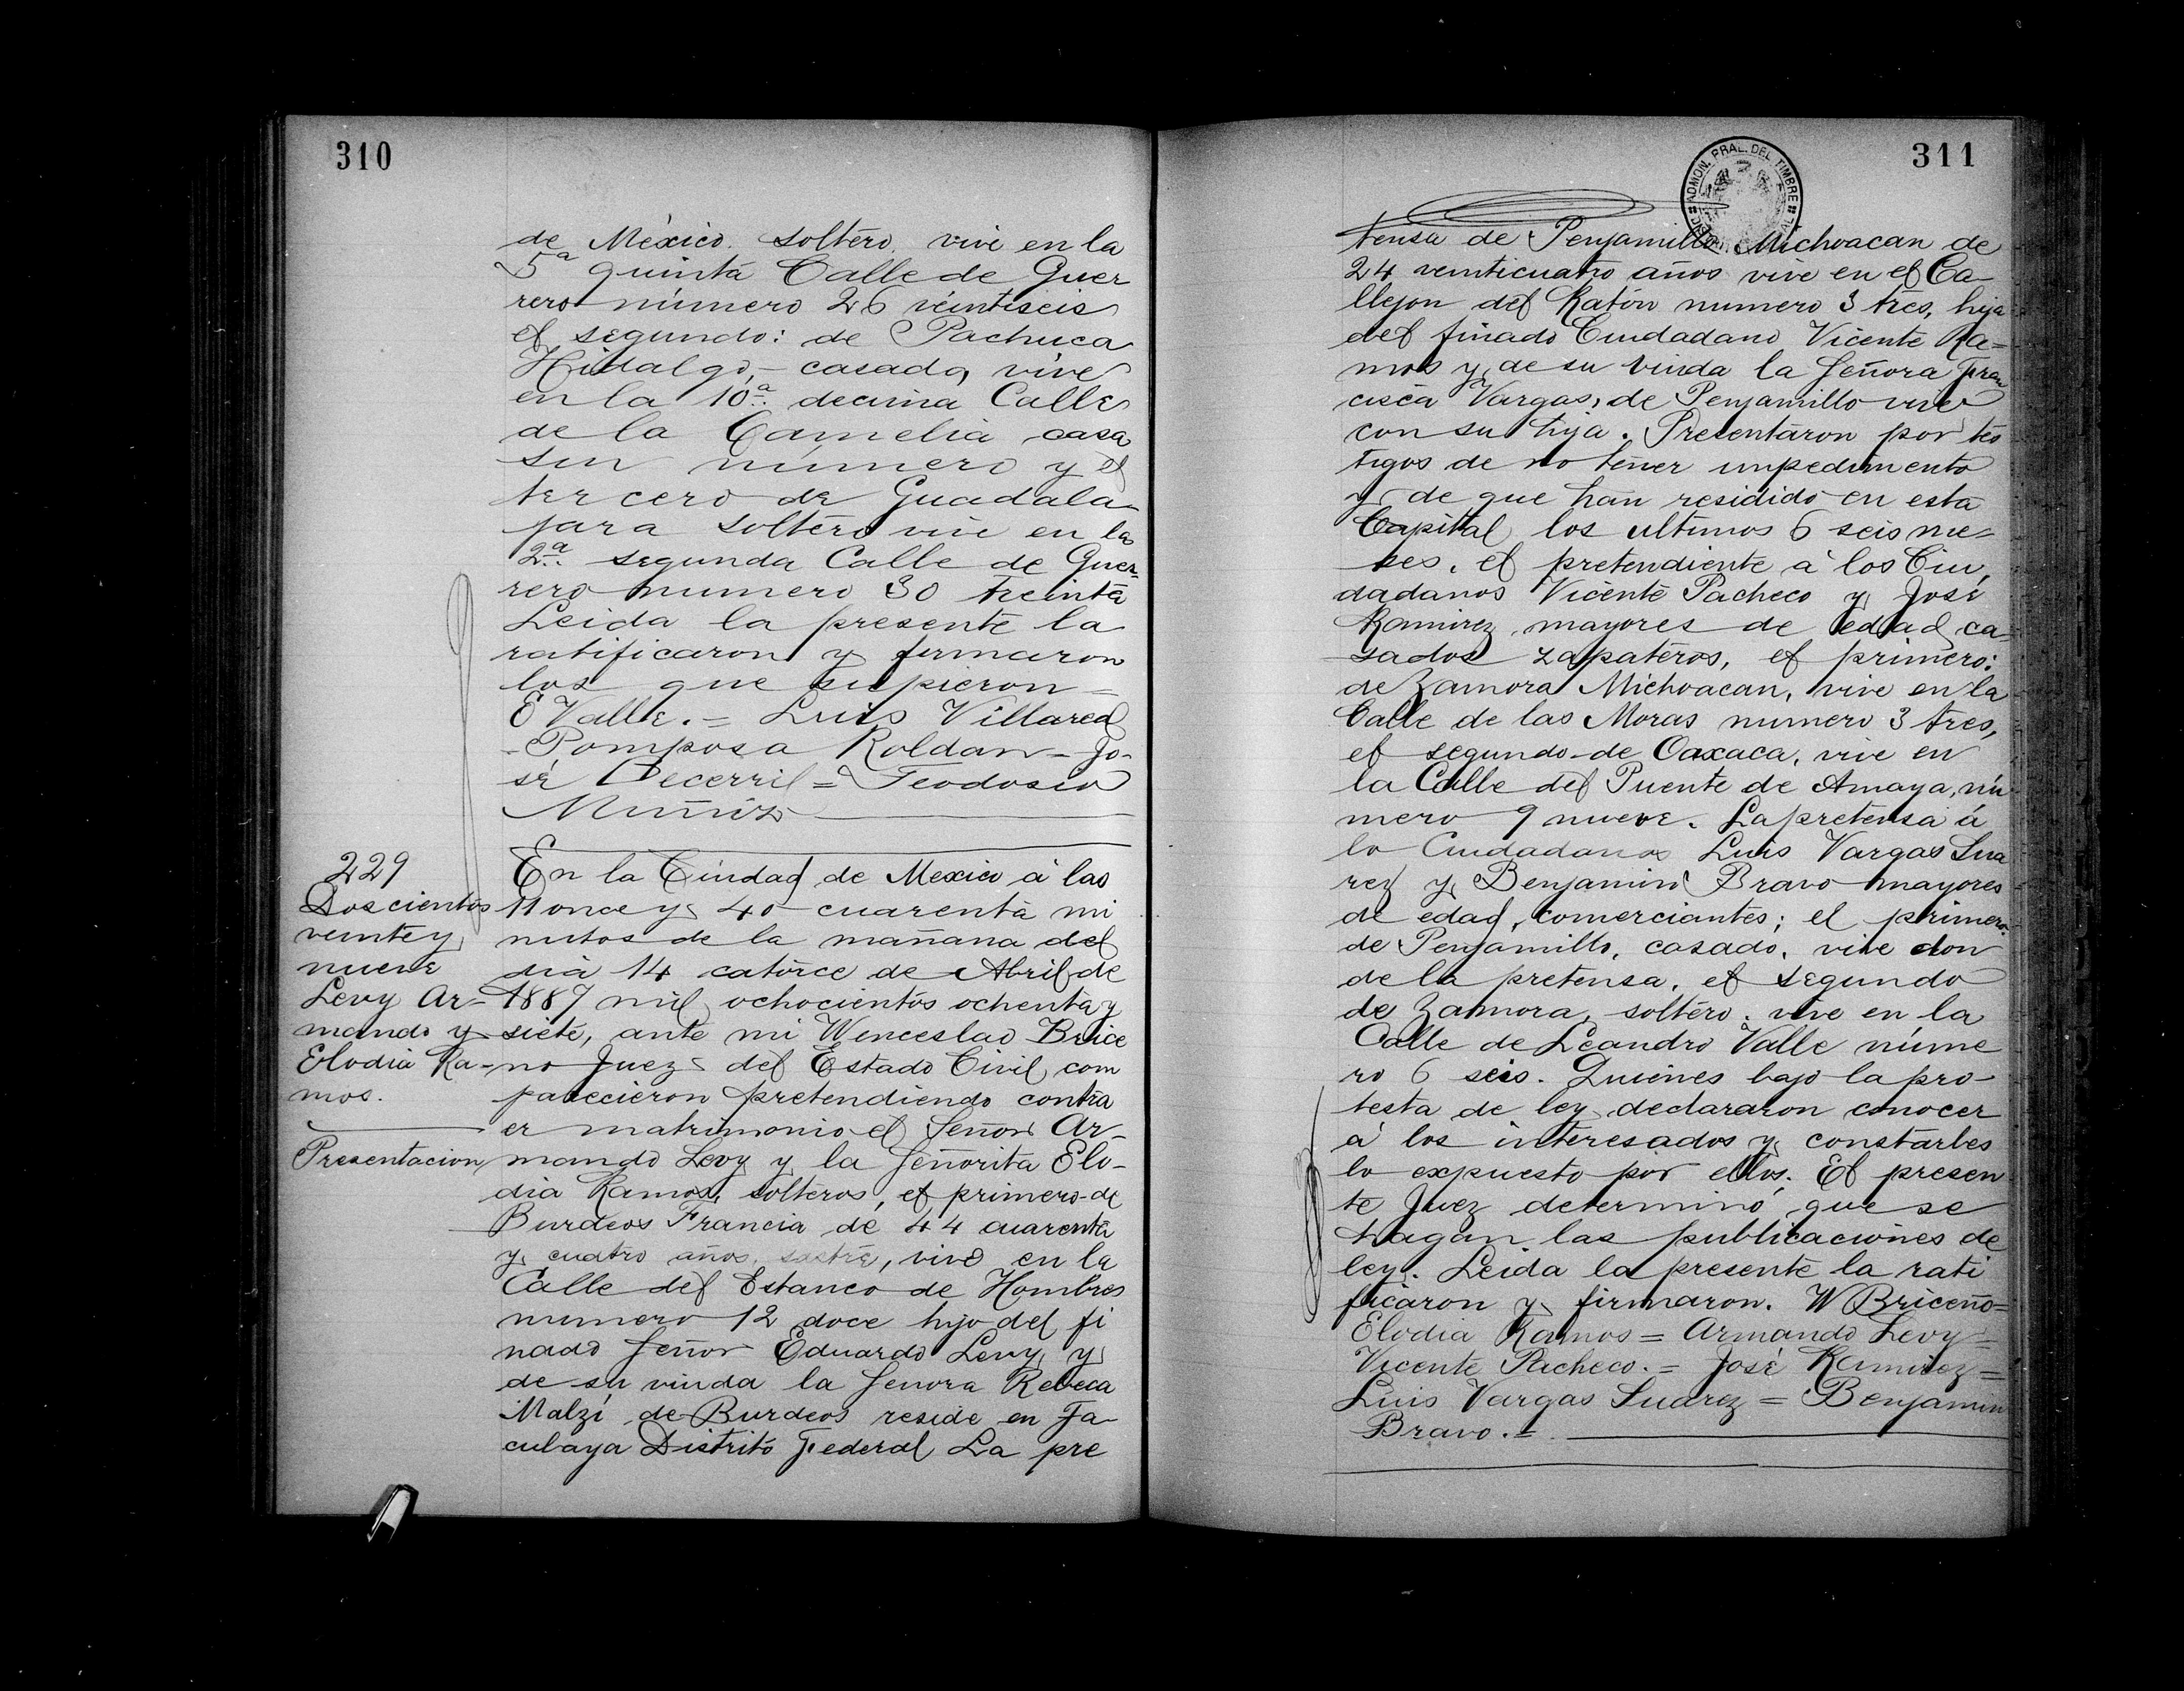 310
de México. soltero, vive en la
5ª quinta Calle de Guer
rero número 26 veintiseis
el segundo: de Pachuca
Hidalgo,- casado, vive
en la 10ª decima Calle
de la Camelia casa
sin número y el
tercero de Guadala-
jara soltero vive en la
2ª segunda Calle de Guer-
rero numero 30 treinta
Leida la presente la
ratificaron y firmaron
los que supieron =
E Valle. = Luis Villareal
- Pomposa Roldan - Jo-
sé Becerril = Teodosio
Muñiz
229
Doscientos
veinte y
nueve
Levy Ar-
mando y
Elodia Ra-
mos.
Presentacion
En la Ciudad de Mexico á las
11 once y 40 cuarenta mi
nutos de la mañana del
dia 14 catorce de Abril de
1887 mil ochocientos ochenta y
siete, ante mi Wenceslao Brice
no Juez del Estado Civil com
parecieron pretendiendo contra
er matrimonio el Señor Ar-
mando Levy y la Señorita Elo-
dia Ramos, solteros, el primero de
Burdeos Francia de 44 cuarenta
y cuatro años, sastre, vive en la
Calle del Estanco de Hombres
numero 12 doce hijo del fi
nado Señor Eduardo Levy y
de su viuda la Senora Rebeca
Malzi de Burdeos reside en Ta-
cubaya Distrito Federal La pre
311
ADMON. PRAL. DEL TIMBRE
tensa de Penjamillo Michoacan de
24 veinticuatro años vive en el Ca-
llejon del Ratón numero 3 tres, hija
del finado Ciudadano Vicente Ra=
mos y de su viuda la Señora Fran
cisca Vargas, de Penjamillo vive
con su hija. Presentaron por tes
tigos de no tener impedimento
y de que han residido en esta
Capital los ultimos 6 seis me-
ses, el pretendiente á los Ciu,
dadanos Vicente Pacheco y José
Ramirez, mayores de edad, ca-
sados zapateros, el primero:
de Zamora Michoacan, vive en la
Calle de las Moras numero 3 tres,
el segundo de Oaxaca, vive en
la Calle del Puente de Amaya, nú
mero 9 nueve. La pretensa á
lo Ciudadanos Luis Vargas Sua
rez y Benjamin Bravo mayores
de edad, comerciantes; el primero:
de Penjamillo, casado, vive don
de la pretensa, el segundo
de Zamora, soltero, vive en la
Calle de Leandro Valle núme
ro 6 seis. Quienes bajo la pro-
testa de ley declararon conocer
á los interesados y constarles
lo expuesto por ellos. El presen
te Juez determinó que se
hagan las publicaciones de
ley. Leida la presente la rati
ficaron y firmaron. W Briceño=
Elodia Ramos = Armando Levy =
Vicente Pacheco. = José Ramirez =
Luis Vargas Suarez = Benjamin
Bravo. =